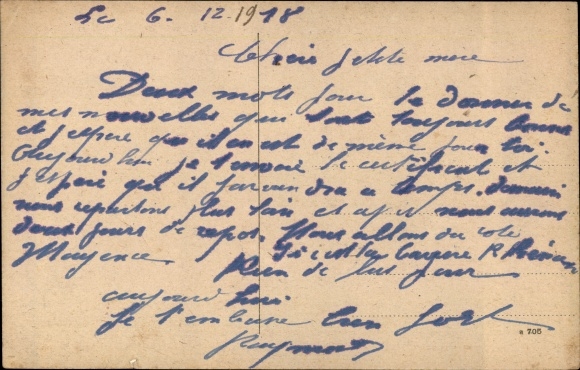 Le 6. 12. 1918
Cher petite mere
Deux mots pour te donner de
mes nouvelles qui sont toujours bonne
et j'espere qu'il en est de même pour toi.
Aujourdhui je t'envoie le certificat et
j'espere qu'il parviendra a temps. demain
nous repartons plus loin et apré nous aurons
deux jours de repos. Nous allons du coté
Mayence
Rien de plus pour
aujourd hui
Je t'embrasse bien fort
Raymond
e 705